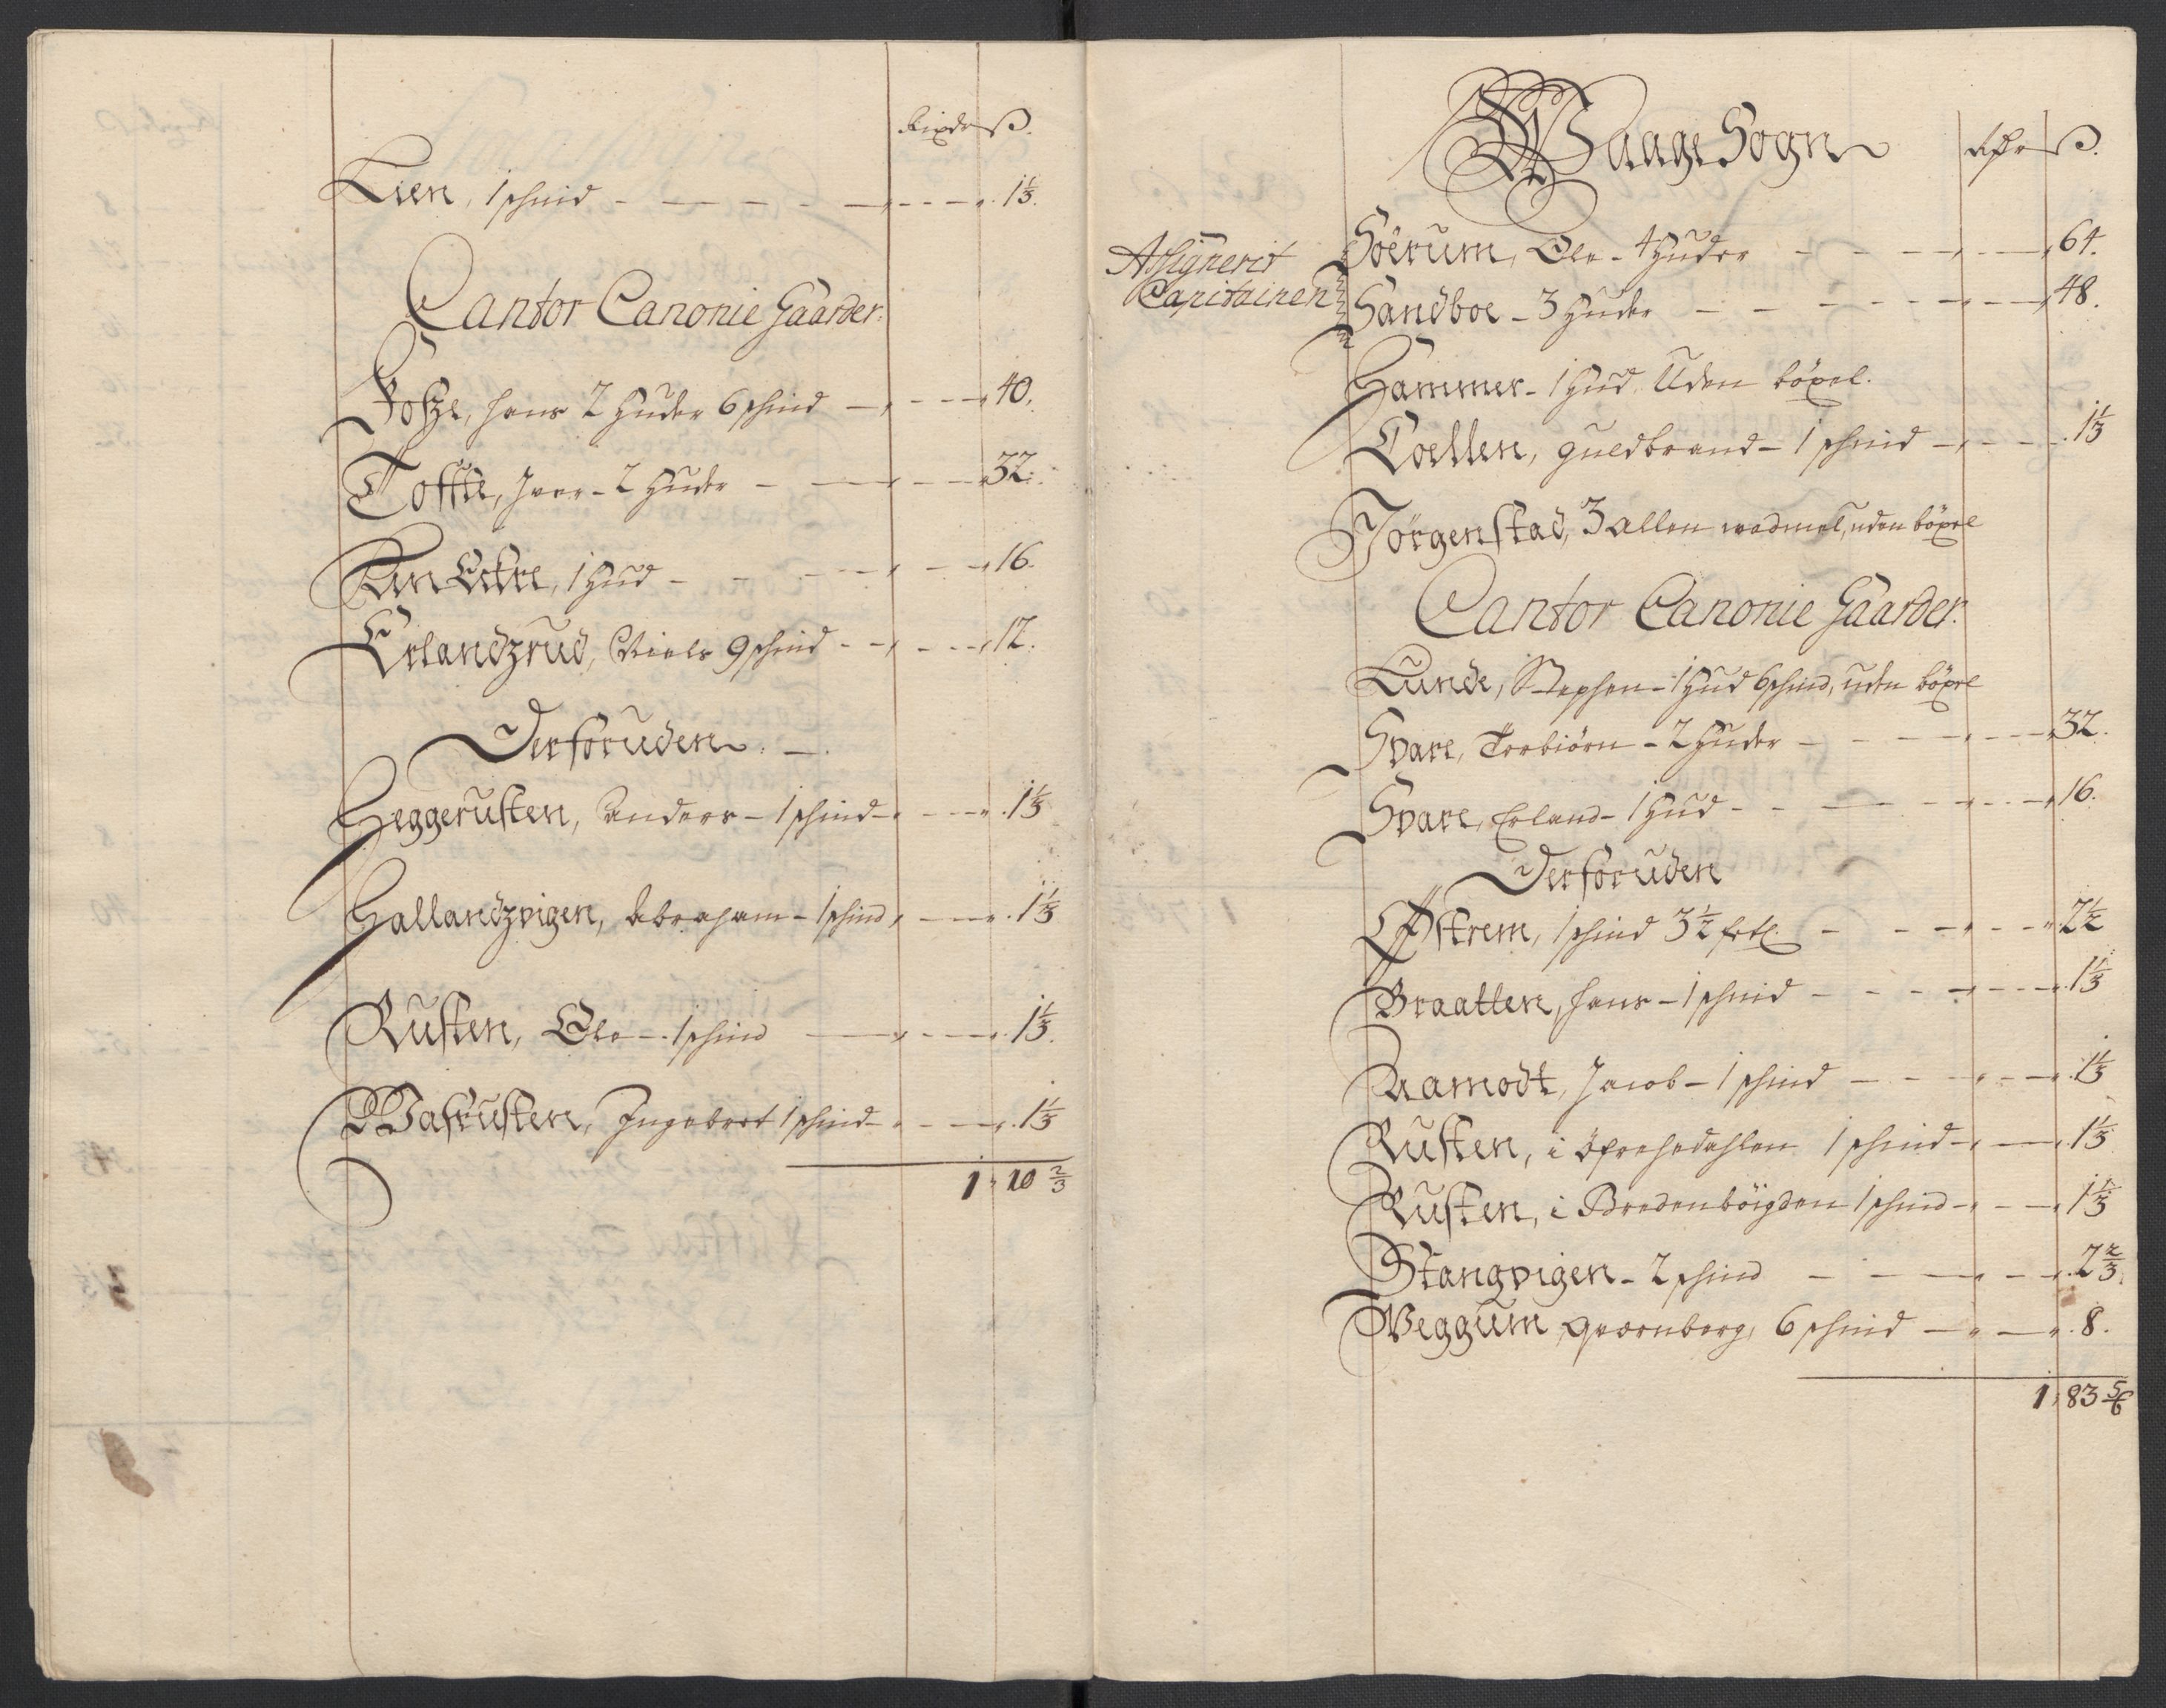 Rixdr ß.
Lien, 1 schind - - - - 1⅓.
Cantor Canonie Gaarder.
hans 2 Huder 6 schind - - - 40.
Toffte, Iver - 2 Huder - - - 32.
1 Hud - - - 16.
Erlandzrud, Niels 9 schind - - - 12.
Derforuden.
Heggerusten, Anders - 1 schind - - - 1⅓
Hallandzvigen, Abraham - 1 schind - - - 1⅓
Rusten, Ole - 1 schind - - - 1⅓.
Ingebret 1 schind - - - 1⅓
1 " 10 ⅔
Waage Sogn
Rdr ß.
Assignerit
Capitainen
Söerum, Ole - 4 Huder - - - 64.
Sandboe - 3 Huder - - - 48.
Hammer - 1 Hud Uden böxel.
guldbrand - 1 schind - - - 1⅓
Jörgenstad, 3 allen wadmel, uden böxel
Cantor Canonie Gaarder.
Lunde, Stephen - 1 Hud 6 schind, uden böxel
Svare, Torbiörn - 2 Huder - - - 32.
Svare, Erland - 1 Hud - - - 16.
Derforuden
Østrem, 1 schind 3½ - - - 2½
Braatten, hans - 1 schind - - - 1⅓
Aamodt, Jacob - 1 schind - - - 1⅓
Rusten, i 1 schind - - - 1⅓
Rusten, i Bredenböigden 1 schind - - - 1⅓
Stangvigen - 2 schind - - - 2⅔.
Veggum qværnberg, 6 schind - - - 8.
1 " 83 ⅚